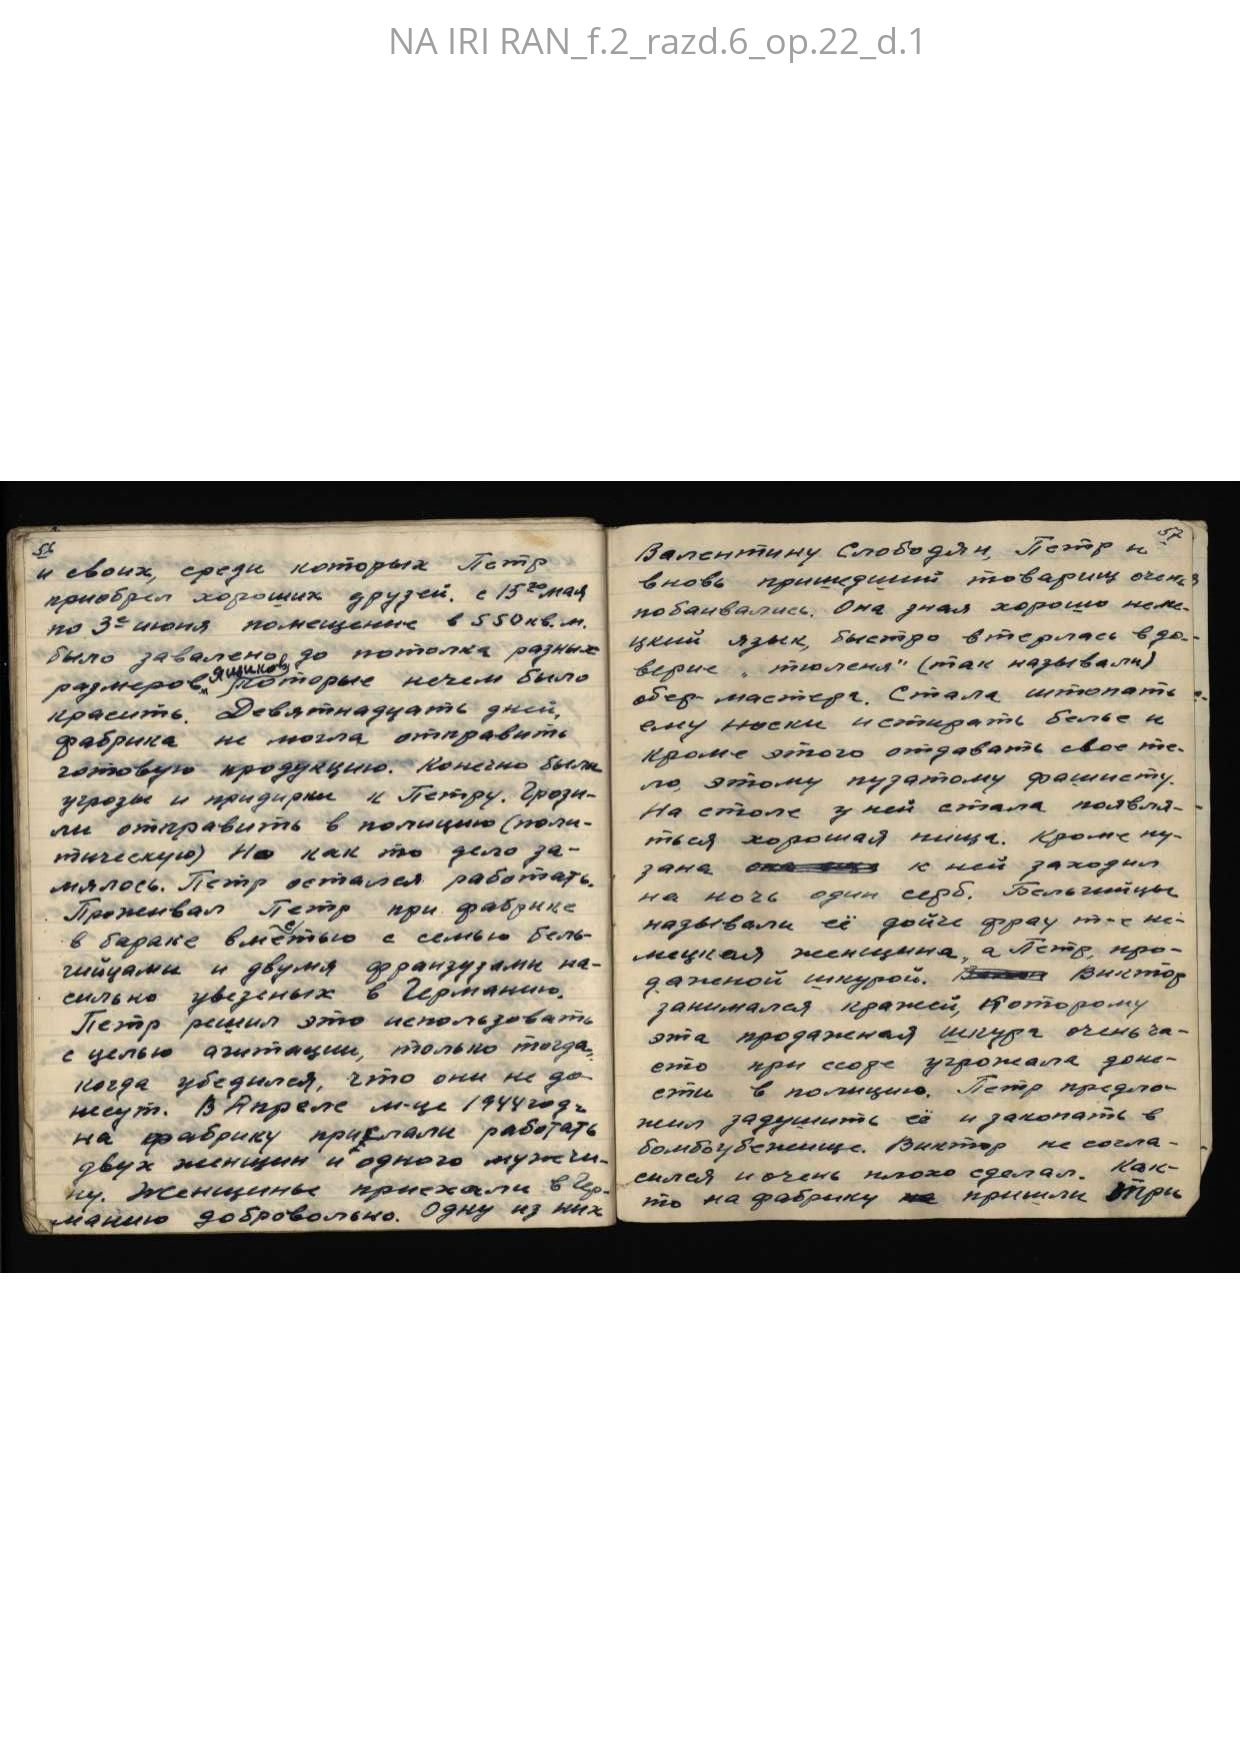 NA IRI RAN_f.2_razd.6_op.22_d.1
56
и своих, среди которых Петр
приобрел хороших друзей. с 15го мая
по 3е июня помещение в 550 кв.м.
было завалено до потолка разных
размеров ящиков, которые нечем было
красить. Девятнадцать дней,
фабрика не могла отправить
готовую продукцию. Конечно были
угрозы и придирки к Петру. Грози-
ли отправить в полицию (поли-
тическую) Но как то дело за-
мялось. Петр остался работать.
Проживал Петр при фабрике
в бараке вместью с семью бель-
гийцами и двумя французами на-
сильно увезеных в Германию.
Петр решил это использовать
с целью агитации, только тогда,
когда убедился, что они не до-
несут. В Апреле м-це 1944 году
на фабрику прислали работать
двух женщин и одного мужчи-
ну. Женщины приехали в Гер-
манию добровольно. Одну из них
57
Валентину Слободян, Петр и
вновь пришедший товарищ очень
побаивались. Она зная хорошо неме-
цкий язык, быстро втерлась в до-
верие „тюленя" (так называли)
обер-мастера. Стала штопать
ему носки и стирать белье и
кроме этого отдавать свое те-
ло, этому пузатому фашисту.
На столе у ней стала появля-
ться хорошая пища. Кроме пу-
зана к ней заходил
на ночь один серб. Бельгийцы
называли её дойче фрау т-е не-
мецкая женщина, а Петр, про-
даженой шкурой. Виктор
занимался кражей, которому
эта продаженая шкура очень ча-
сто при ссоре угрожала доне-
сти в полицию. Петр предло-
жил задушить её и закопать в
бомбоубежище. Виктор не согла-
сился и очень плохо сделал. Как-
то на фабрику пришли три